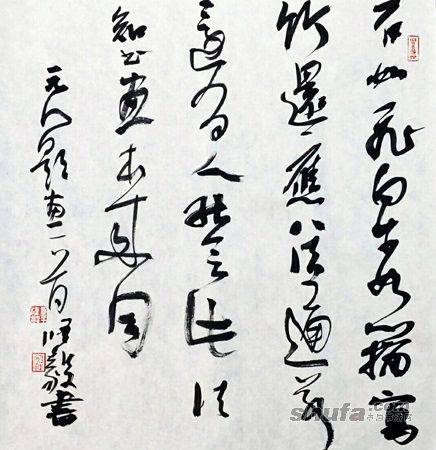 石如飛白木如籀寫
竹還應八法通若
有人能會此須
知書畫本來同
元人題畫一首 毅書
shufa.com